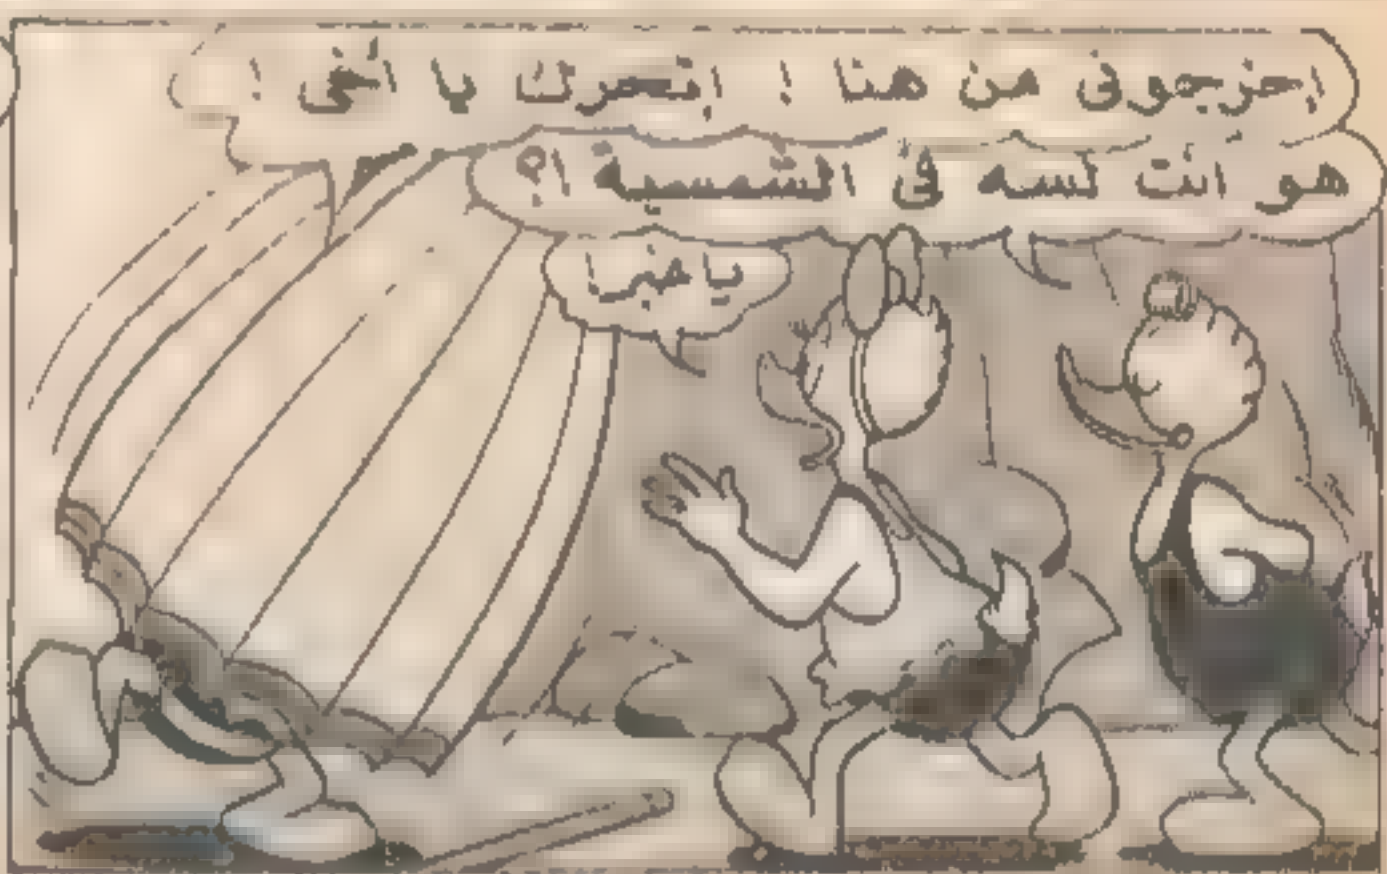 اخرجونى من هنا ! اتحرك يا اخى !
هو انت لسه فى الشمسية ؟!
يا خبر!